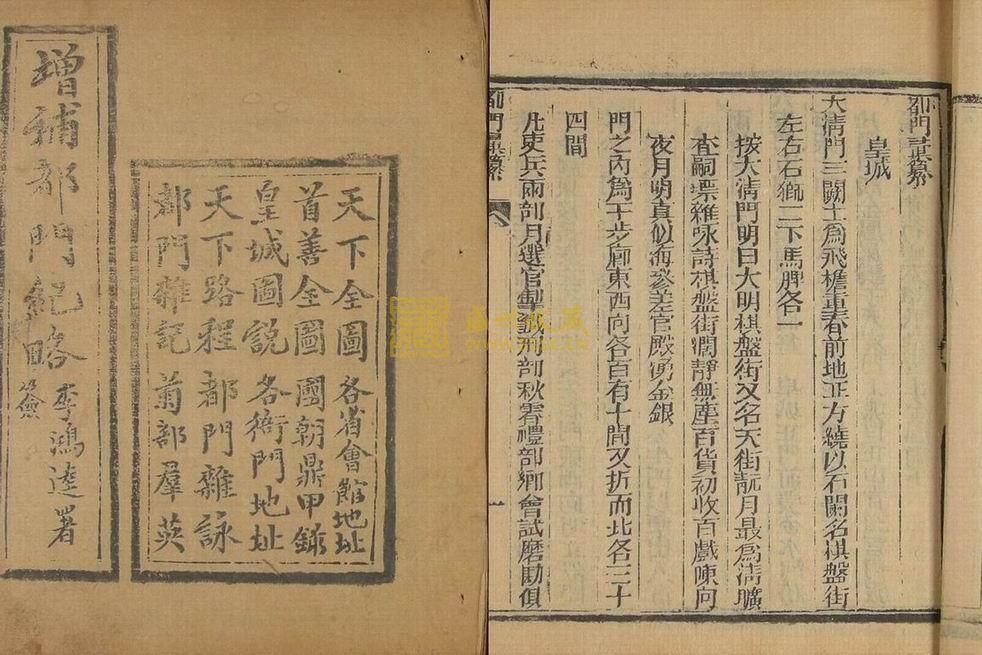 增補都門紀略
李鴻逵署
簽
天下全圖　各省會館地址
首善全圖　國朝鼎甲錄
皇城圖說　各衙門地址
天下路程　都門雜詠
都門雜記　菊部羣英
都門彚纂
皇城
大清門三闕上爲飛檐重脊前地正方繞以石闌名棋盤街
左右石獅二下馬牌各一
按大淸門明曰大明棋盤街又名天街靓月最爲淸曠
查嗣瑮雜咏詩棋盤街濶靜無塵百貨初收百戲陳向
夜月明眞似海參差宮殿湧金銀
門之內爲千步廊東西向各百有十間又折而北各三十
四間
凡吏兵兩部月選官掣籤刑部秋審禮部鄉會試磨勘俱
都門彚纂
一